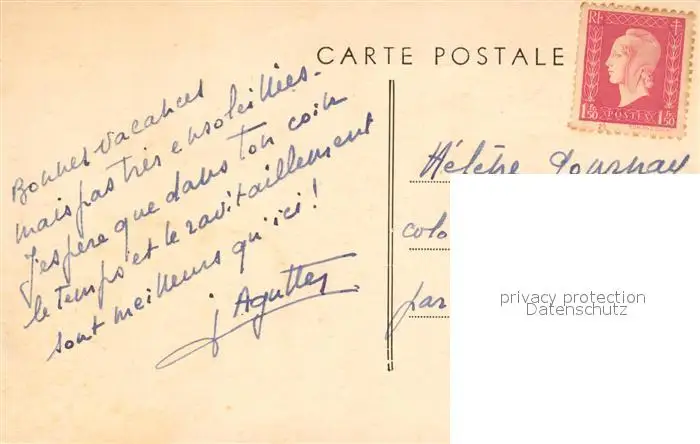 CARTE POSTALE
RF
1F50 POSTES 1F50
Bonnes vacances
mais pas très ensoleillées.
J'espère que dans ton coin
le temps et le ravitaillement
sont meilleurs qu'ici !
J Aguttes
Hélène
colo
par
privacy protection
Datenschutz